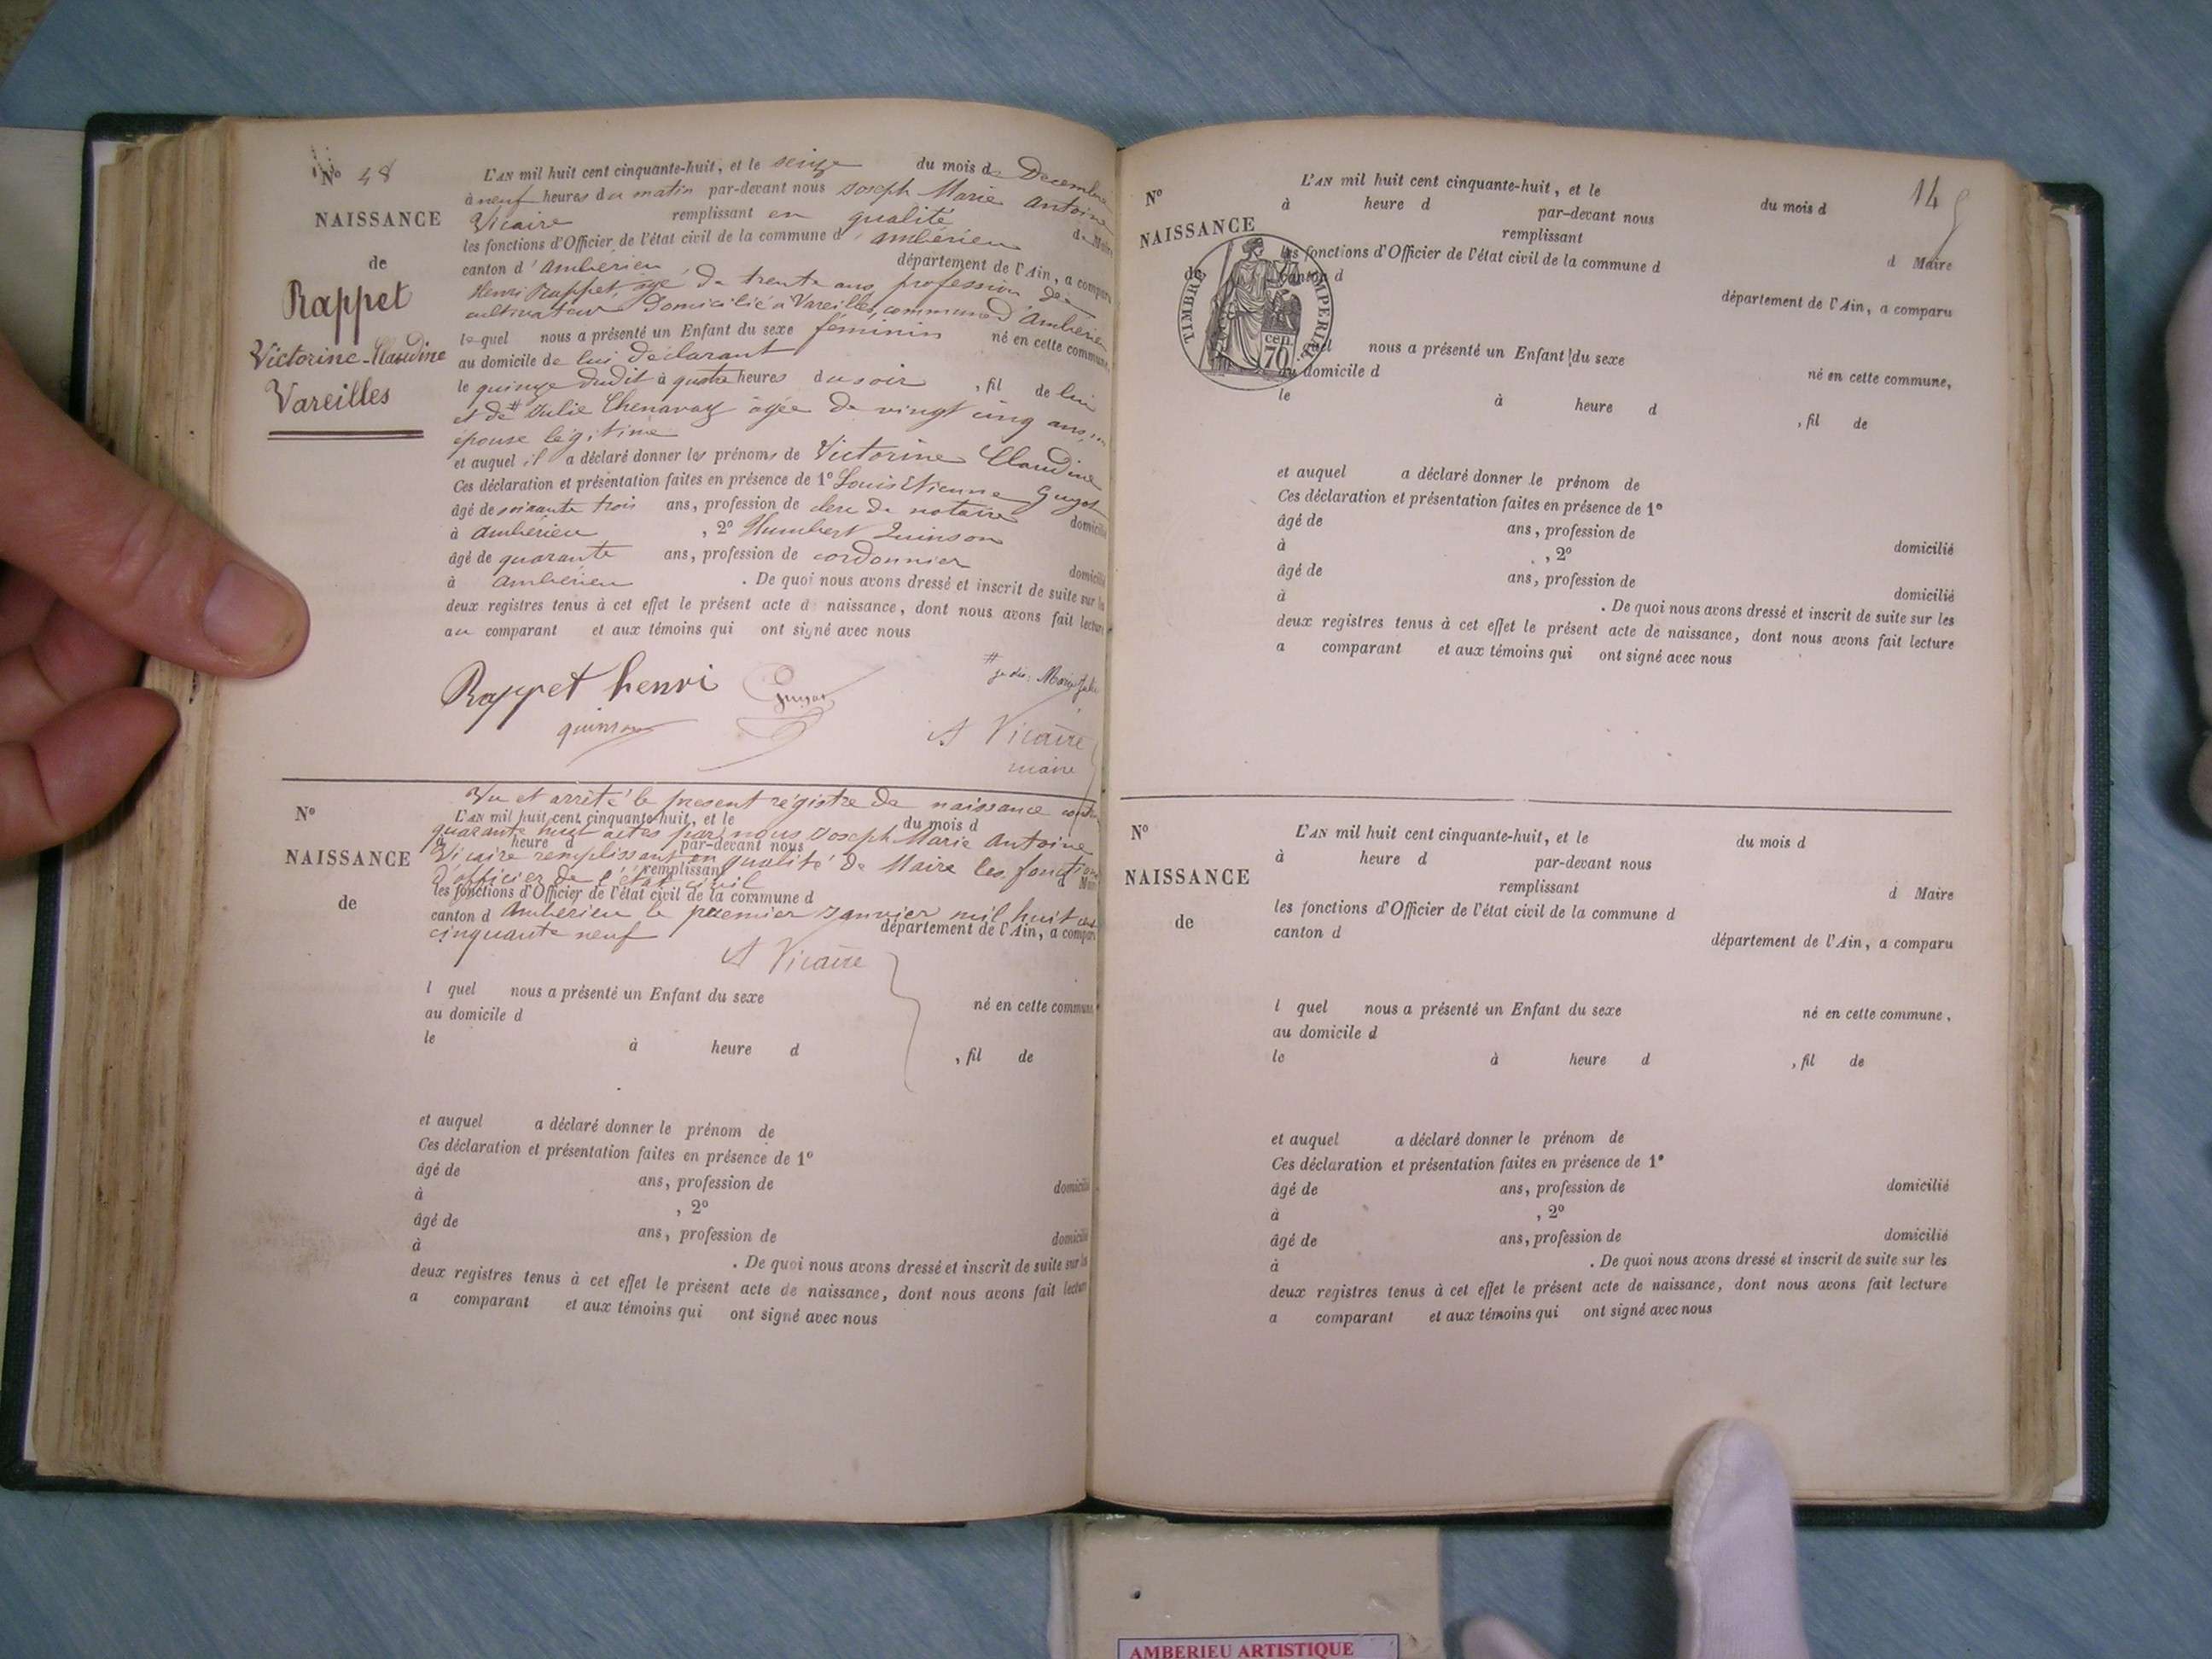 N° 48
NAISSANCE
de
Rappet
Victorine-Claudine
Vareilles
L'AN mil huit cent cinquante-huit, et le seize du mois de Decembre
à neuf heures du matin par-devant nous Joseph Marie Antoine
Vicaire remplissant en qualité de Maire
les fonctions d'Officier de l'état civil de la commune d'ambérieu
canton d'ambérieu, département de l'Ain, a comparu
Henri Rappet, age de trente ans, profession de
cultivateur Domicilié a Vareilles, commune d'ambérieu
lequel nous a présenté un Enfant du sexe féminin né en cette commune,
au domicile de lui déclarant
le quinze dudit à quatre heures du soir, fil de lui
et de # Julie Chenavaz âgée de vingt cinq ans,
épouse légitime
et auquel il a déclaré donner les prénoms de Victorine Claudine
Ces déclaration et présentation faites en présence de 1° Louis Etienne Guyot
âgé de soixante trois ans, profession de clerc de notaire domicilié
à ambérieu, 2° Humbert Quinson
âgé de quarante ans, profession de cordonnier domicilié
à ambérieu. De quoi nous avons dressé et inscrit de suite sur les
deux registres tenus à cet effet le présent acte de naissance, dont nous avons fait lecture
au comparant et aux témoins qui ont signé avec nous
# je dis: Marie Julie
Rappet henri Guyot
quinson A Vicaire
maire
N°
NAISSANCE
de
Vu et arrêté le present régistre de naissance
L'AN mil huit cent cinquante-huit, et le du mois d
quarante huit actes par nous Joseph Marie Antoine
à heure d par-devant nous
Vicaire remplissant en qualité de Maire les fonctions
remplissant d Maire
d'officier de l'état civil
les fonctions d'Officier de l'état civil de la commune d
canton d Ambérieu le premier Janvier mil huit cent
cinquante neuf département de l'Ain, a comparu
A Vicaire
l quel nous a présenté un Enfant du sexe né en cette commune,
au domicile d
le à heure d , fil de
et auquel a déclaré donner le prénom de
Ces déclaration et présentation faites en présence de 1°
âgé de ans, profession de domicilié
à , 2°
âgé de ans, profession de domicilié
à . De quoi nous avons dressé et inscrit de suite sur les
deux registres tenus à cet effet le présent acte de naissance, dont nous avons fait lecture
a comparant et aux témoins qui ont signé avec nous
14
N°
NAISSANCE
de
TIMBRE IMPERIAL
cen
70
L'AN mil huit cent cinquante-huit, et le du mois d
à heure d par-devant nous
remplissant d Maire
les fonctions d'Officier de l'état civil de la commune d
canton d département de l'Ain, a comparu
l quel nous a présenté un Enfant du sexe né en cette commune,
au domicile d
le à heure d , fil de
et auquel a déclaré donner le prénom de
Ces déclaration et présentation faites en présence de 1°
âgé de ans, profession de domicilié
à , 2°
âgé de ans, profession de domicilié
à . De quoi nous avons dressé et inscrit de suite sur les
deux registres tenus à cet effet le présent acte de naissance, dont nous avons fait lecture
a comparant et aux témoins qui ont signé avec nous
N°
NAISSANCE
de
L'AN mil huit cent cinquante-huit, et le du mois d
à heure d par-devant nous
remplissant d Maire
les fonctions d'Officier de l'état civil de la commune d
canton d département de l'Ain, a comparu
l quel nous a présenté un Enfant du sexe né en cette commune,
au domicile d
le à heure d , fil de
et auquel a déclaré donner le prénom de
Ces déclaration et présentation faites en présence de 1°
âgé de ans, profession de domicilié
à , 2°
âgé de ans, profession de domicilié
à . De quoi nous avons dressé et inscrit de suite sur les
deux registres tenus à cet effet le présent acte de naissance, dont nous avons fait lecture
a comparant et aux témoins qui ont signé avec nous
AMBERIEU ARTISTIQUE